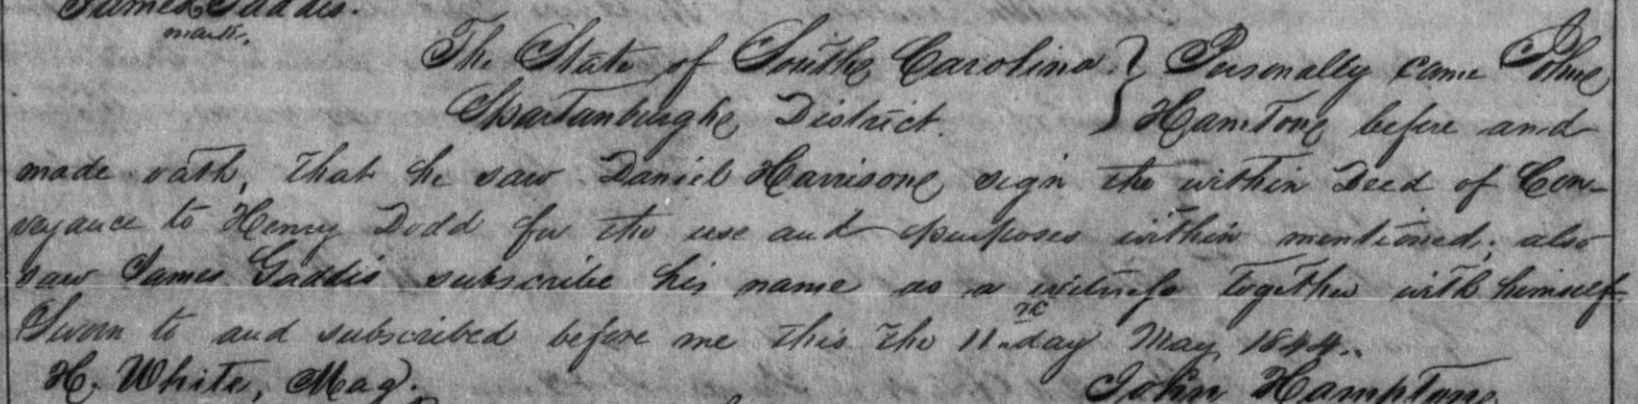 James Gaddis.
mark.
The State of South Carolina } Personally came John
Spartanburgh District. } Hamton before and
made oath, that he saw Daniel Harrison sign the within Deed of Con-
veyance to Henry Dodd for the use and purposes within mentioned, also
saw James Gaddis subscribe his name as a witness together with himself
Sworn to and subscribed before me this the 11th day May 1844.
H. White, Mag. John Hampton